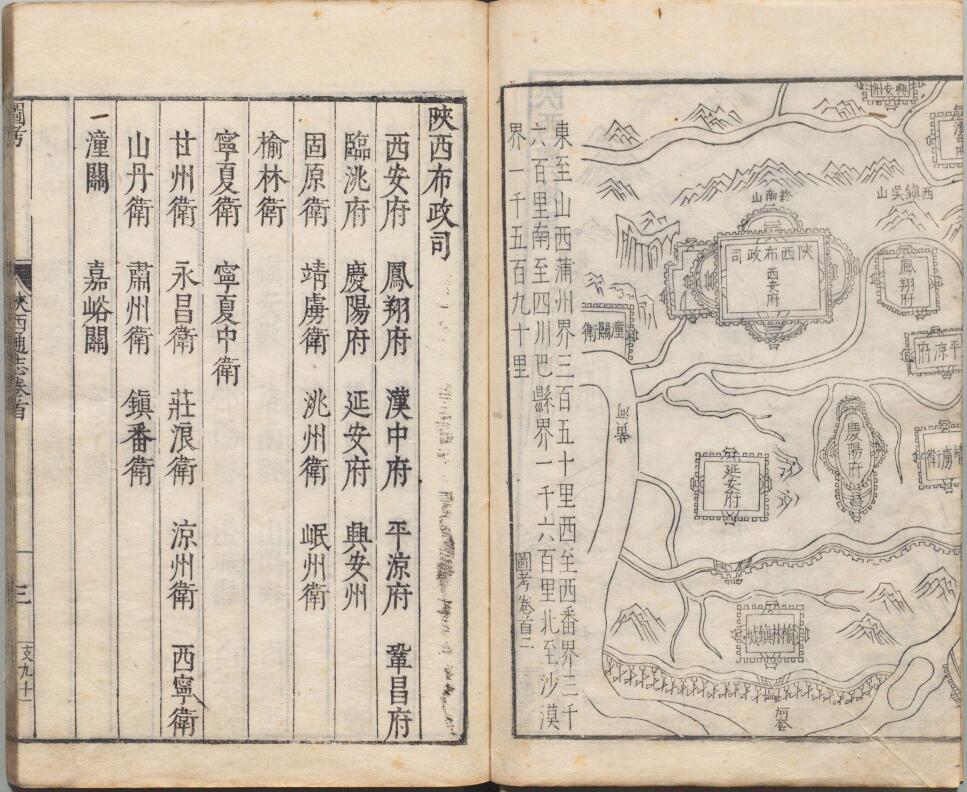 興安州
終南山
西鎮吳山
陝西布政司
西安府
鳳翔府
潼關衛
平涼府
黃河
慶陽府
延安府
靖虜衛
榆林鎮城
河套
東至山西蒲州界三百五十里西至西番界三千
六百里南至四川巴縣界一千六百里北至沙漠
界一千五百九十里
圖考卷首二
陝西布政司
西安府 鳳翔府 漢中府 平涼府 鞏昌府
臨洮府 慶陽府 延安府 興安州
固原衛 靖虜衛 洮州衛 岷州衛
榆林衛
寧夏衛 寧夏中衛
甘州衛 永昌衛 莊浪衛 涼州衛 西寧衛
山丹衛 肅州衛 鎮番衛
潼關 嘉峪關
圖考
陝西通志卷首
三
支九十一